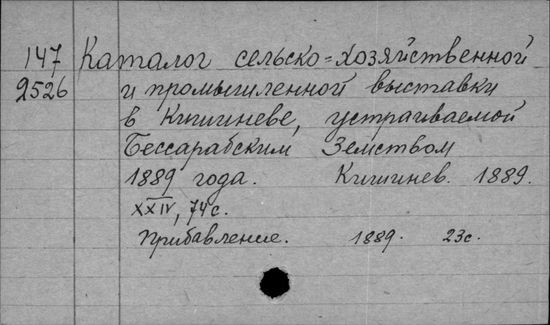 147 Каталог сельско=хозяйственной
2526 и промышленной выставки
в Кишиневе, устраиваемой
Бессарабским Земством
1889 года. Кишинев. 1889.
XXIV, 74 с.
Прибавление. 1889. 23 с.